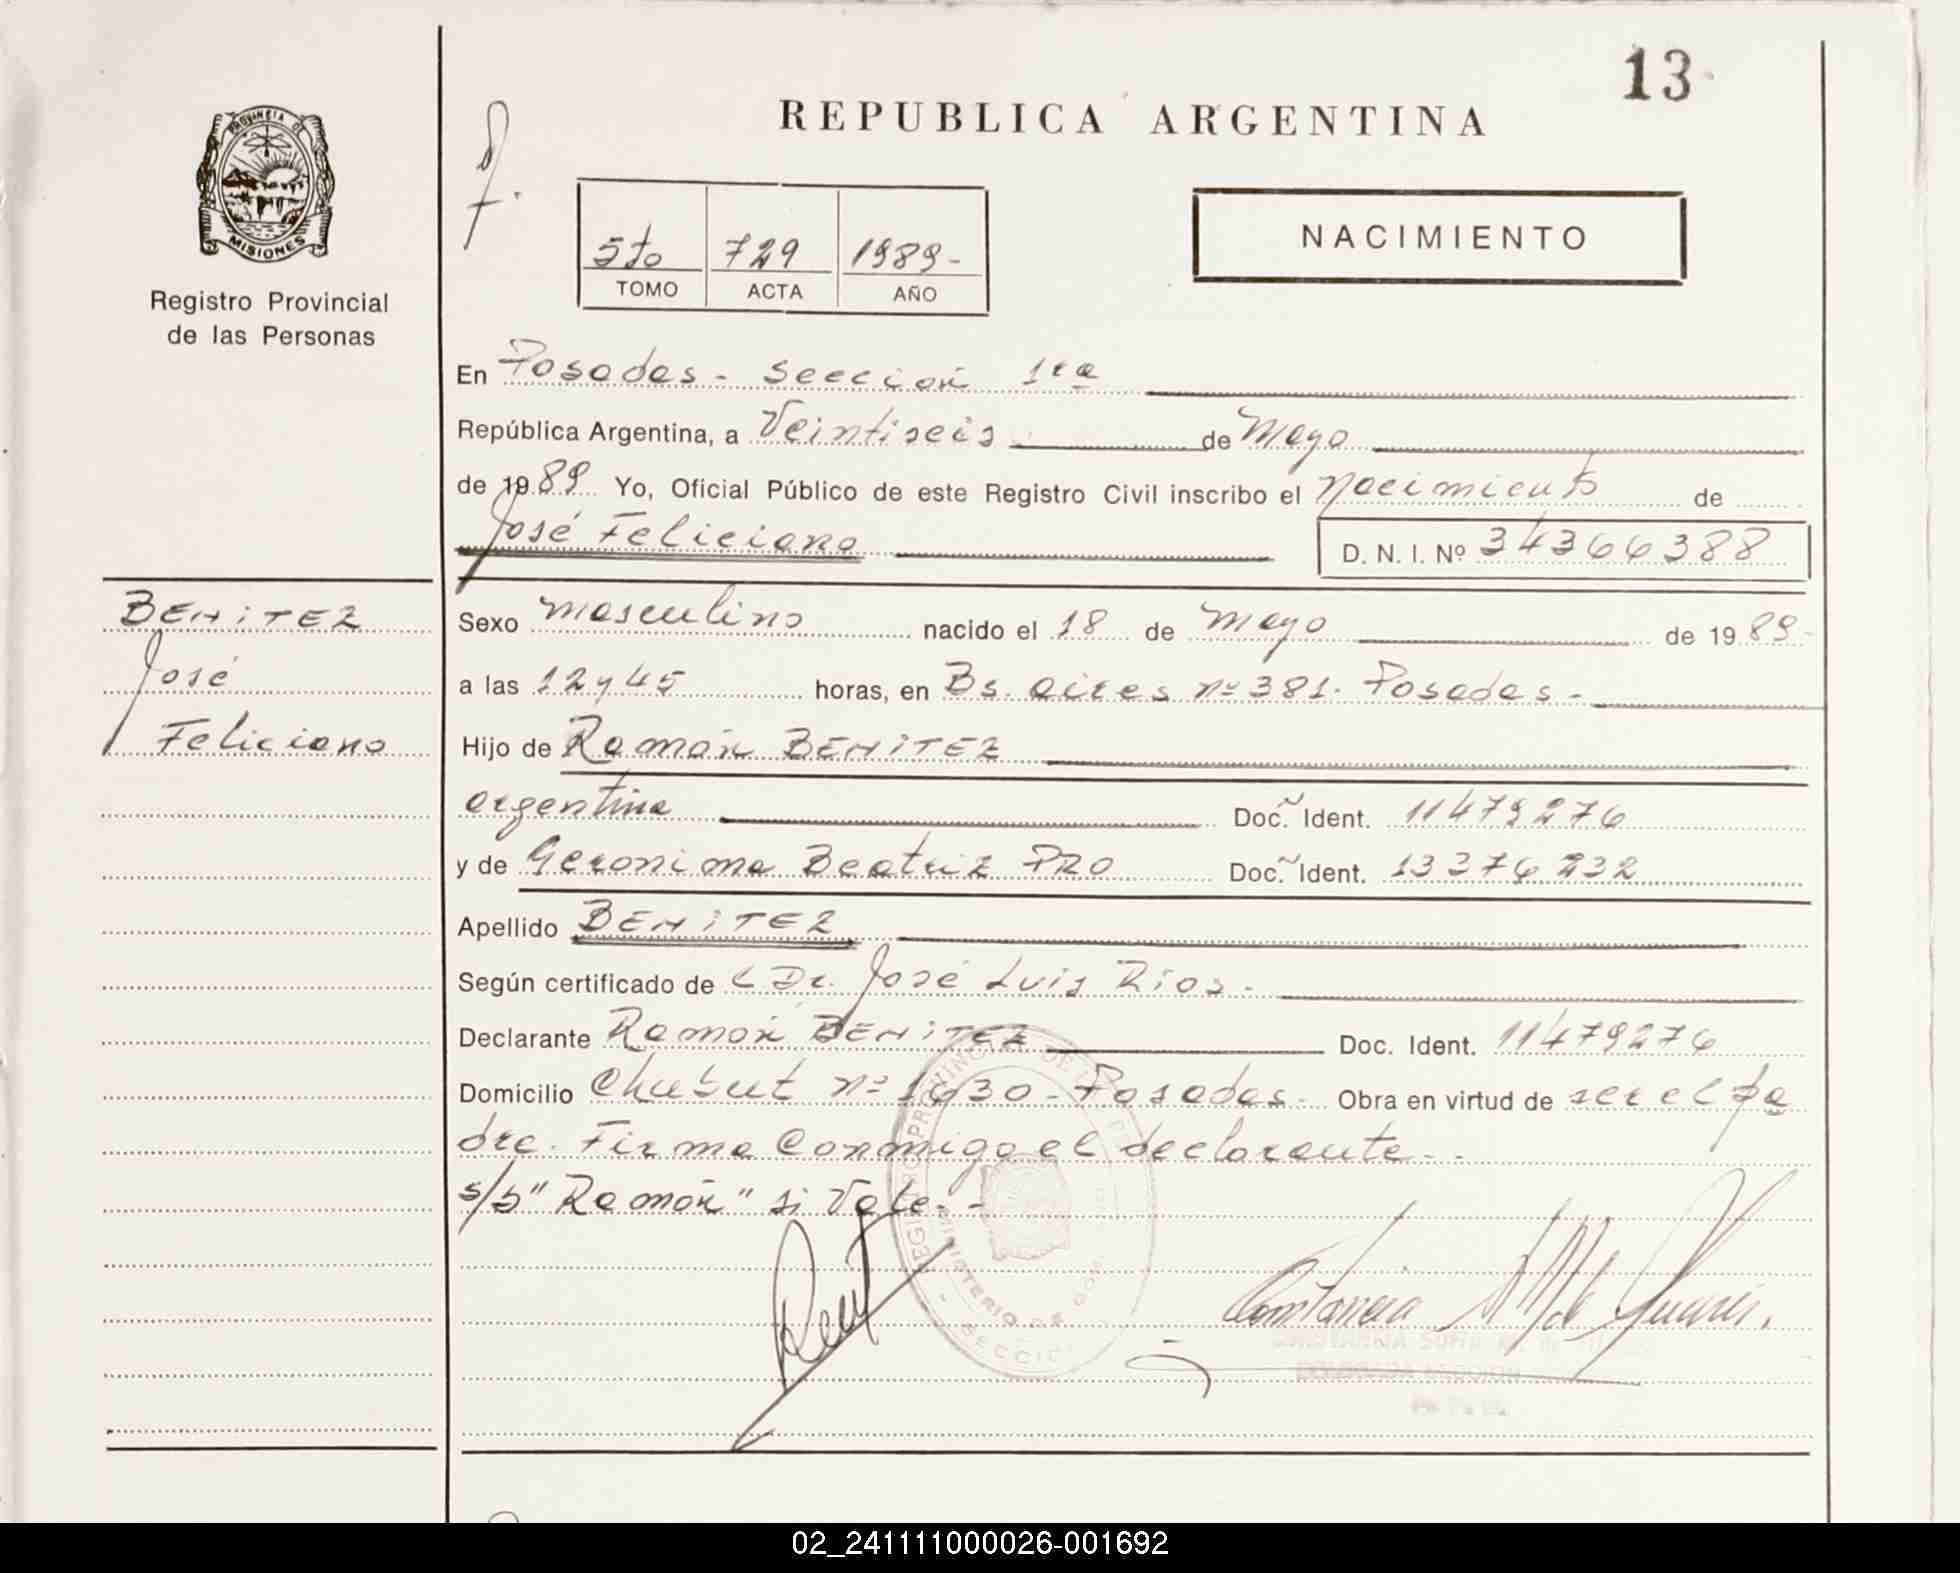 13
REPUBLICA ARGENTINA
PROVINCIA DE
MISIONES
Registro Provincial
de las Personas
5to 729 1989-
TOMO ACTA AÑO
NACIMIENTO
En Posadas - Sección 1ra
República Argentina, a Veintiseis de Mayo
de 1989 Yo, Oficial Público de este Registro Civil inscribo el Nacimiento de
José Feliciano D. N. I. Nº 34366388
BENITEZ
José
Feliciano
Sexo masculino nacido el 18 de Mayo de 1989-
a las 12 y 45 horas, en Bs. aires nº 381. Posadas -
Hijo de Ramón BENITEZ
argentina Doc. Ident. 11479276
y de Geronima Beatriz PRO Doc. Ident. 13376232
Apellido BENITEZ
Según certificado de Dr. José Luis Rios -
Declarante Ramón BENITEZ Doc. Ident. 11479276
Domicilio Chubut nº 1630 - Posadas - Obra en virtud de ser el pa
dre. Firma Conmigo el declarante. -
s/b "Ramón" si Vale. -
MINISTERIO DE
02_241111000026-001692